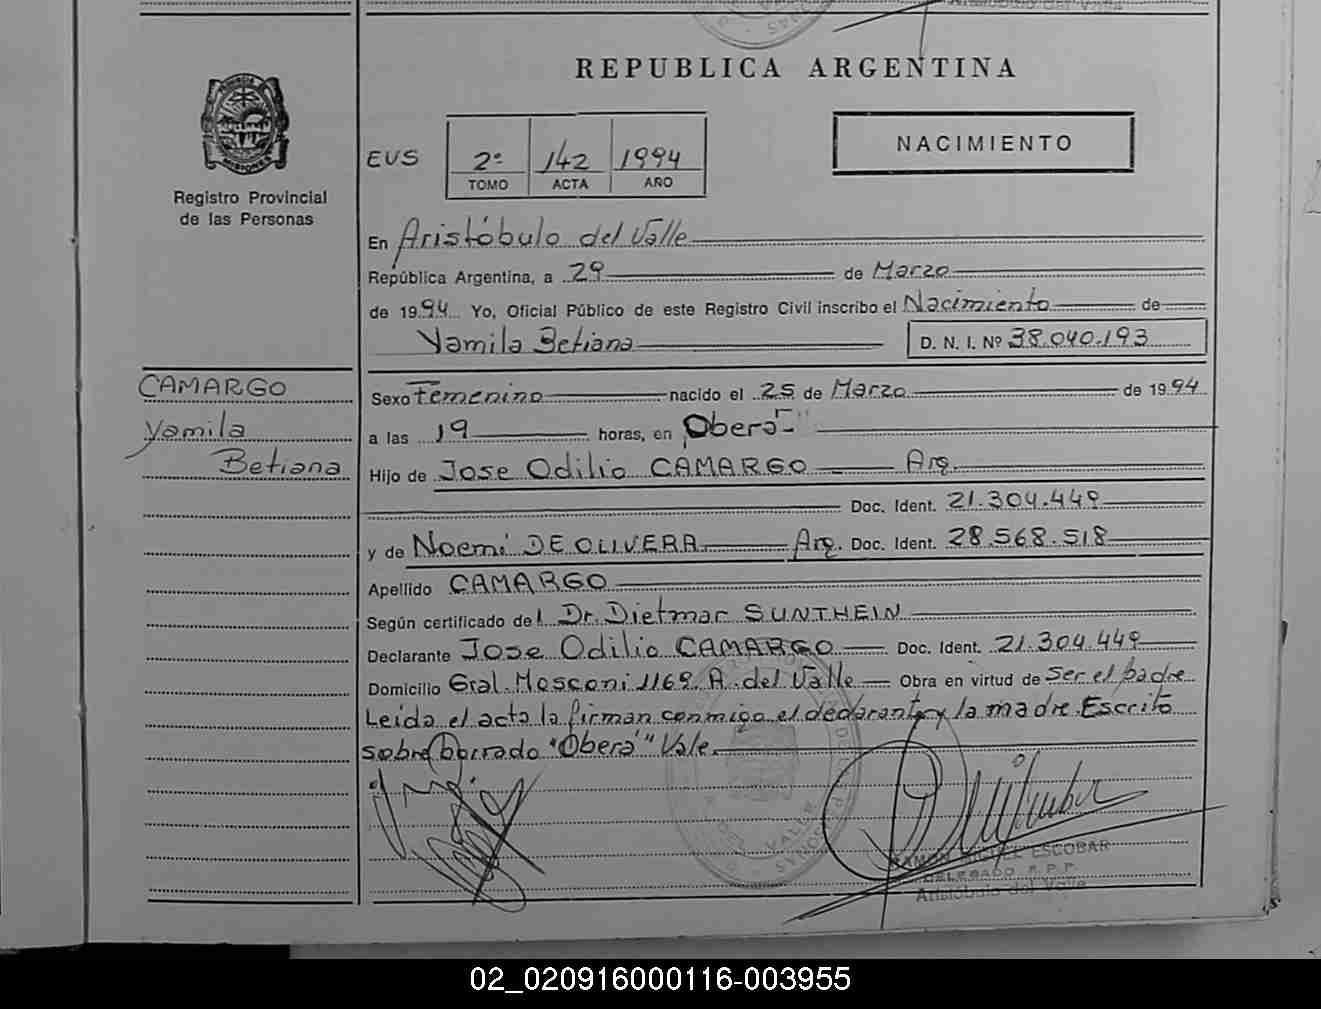 Aristóbulo del Valle
REPUBLICA ARGENTINA
PROVINCIA DE MISIONES
Registro Provincial
de las Personas
EUS
2º 142 1994
TOMO ACTA AÑO
NACIMIENTO
En Aristóbulo del Valle
República Argentina, a 29 de Marzo
de 1994 Yo, Oficial Público de este Registro Civil inscribo el Nacimiento de
Yamila Betiana D. N. I. Nº 38.040.193
CAMARGO
Yamila
Betiana
Sexo Femenino nacido el 25 de Marzo de 1994
a las 19 horas, en "Oberá"
Hijo de Jose Odilio CAMARGO Arg.
Doc. Ident. 21.304.449
y de Noemi DE OLIVERA Arg. Doc. Ident. 28.568.518
Apellido CAMARGO
Según certificado del Dr. Dietmar SUNTHEIN
Declarante Jose Odilio CAMARGO Doc. Ident. 21.304.449
Domicilio Gral. Mosconi 1169. A. del Valle Obra en virtud de ser el padre
Leída el acta la firman conmigo el declarante y la madre. Escrito
sobre borrado "Oberá" Vale.
RAMON MIGUEL ESCOBAR
DELEGADO R.P.P.
Aristóbulo del Valle
02_020916000116-003955